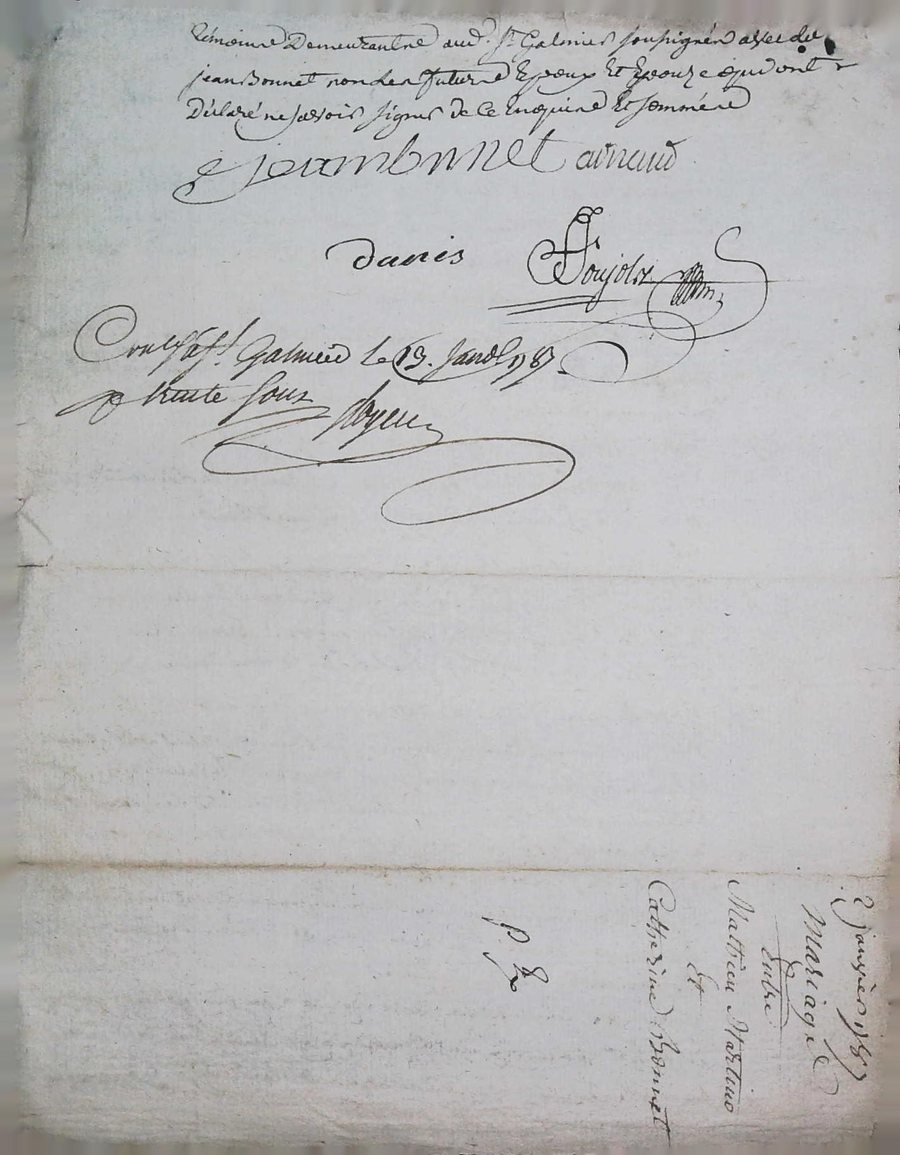 témoins Demeurantne aud. St Galmier soussignés avec led.
jean Bonnet non les futurs Epoux Et Epouze qui ont
Déclaré ne savoir signer de ce Enquis Et sommés
jeambonnet arnaud
danis
Poujols
Conllé a St Galmier le 13 Janv 1787
trente sous
2 janvier 1787
Mariage
Entre
Mathieu Martino
Et
Catherine Bonnet